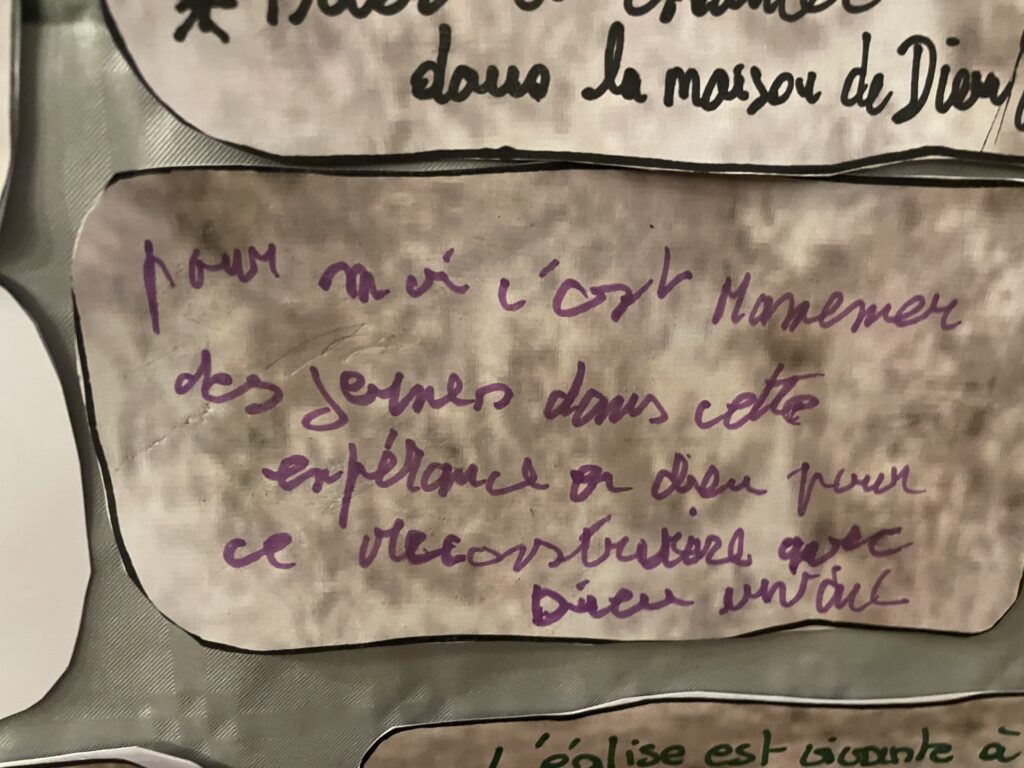 chanter
dans la maison de Dieu
pour moi c'est
des jeunes dans cette
espérance en dieu pour
ce reconstruire avec
Dieu
L'église est vivante à